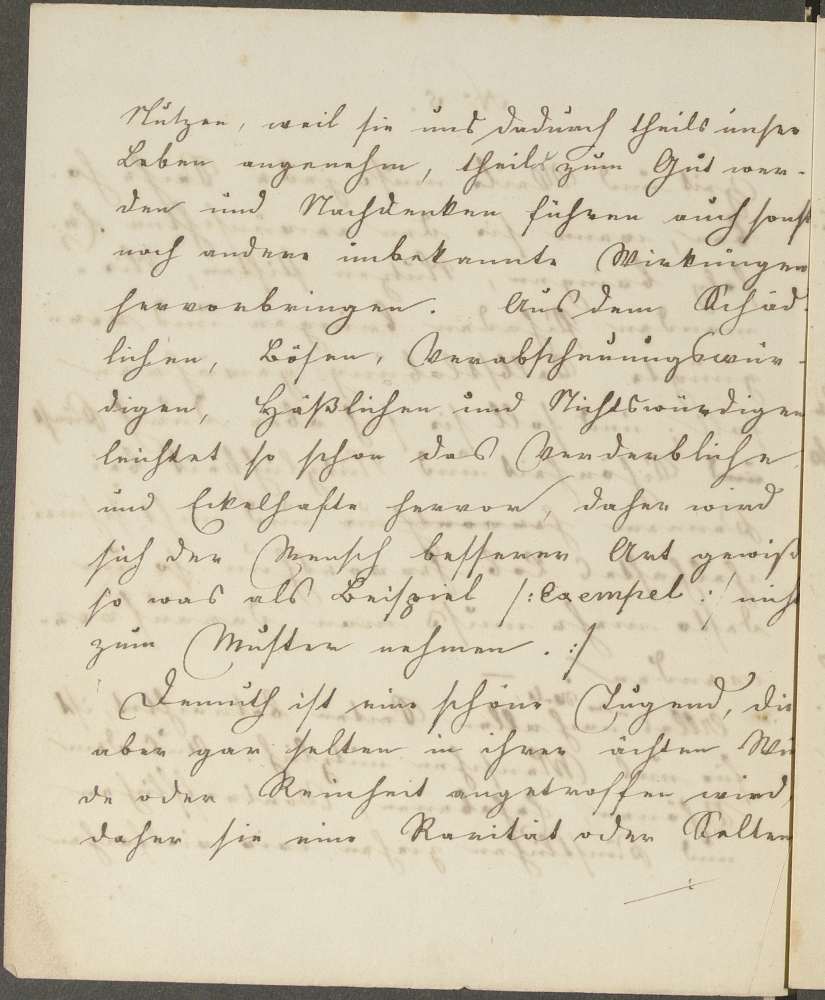 Nutzen, weil sie uns dadurch theils unser
Leben angenehm, theils zum Gut wer-
den und Nachdenken führen auch sonst
noch andere unbekannte Wirkungen
hervorbringen. Aus dem Schäd-
lichen, Bösen, Verabscheuungswür-
digen, Häßlichen und Nichtswürdigen
leichtet so schon das Verderbliche
und Eckelhafte hervor, daher wird
sich der Mensch besserer Art gewiß
so was als Beispiel /: Exempel :/ nicht
zum Muster nehmen. :/
Demuth ist eine schöne Tugend, die
aber gar selten in ihrer ächten Wür
de oder Reinheit angetroffen wird,
daher sie eine Rarität oder Selten